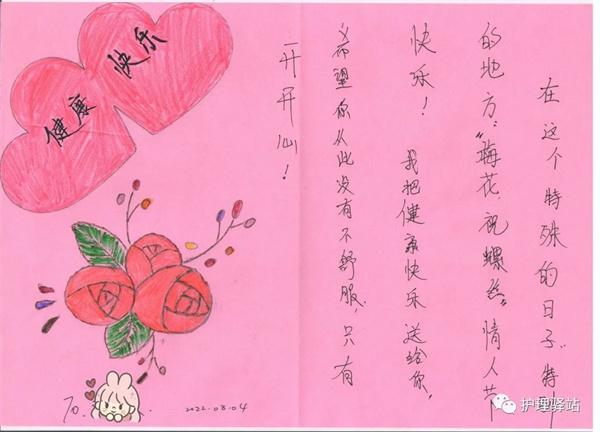 健康
快乐
在这个特殊的日子,特
的地方"梅花,祝螺丝"情人节
快乐! 我把健康快乐送给你,
希望你从此没有不舒服,只有
开开心!
To.
2022.08.04
护理驿站